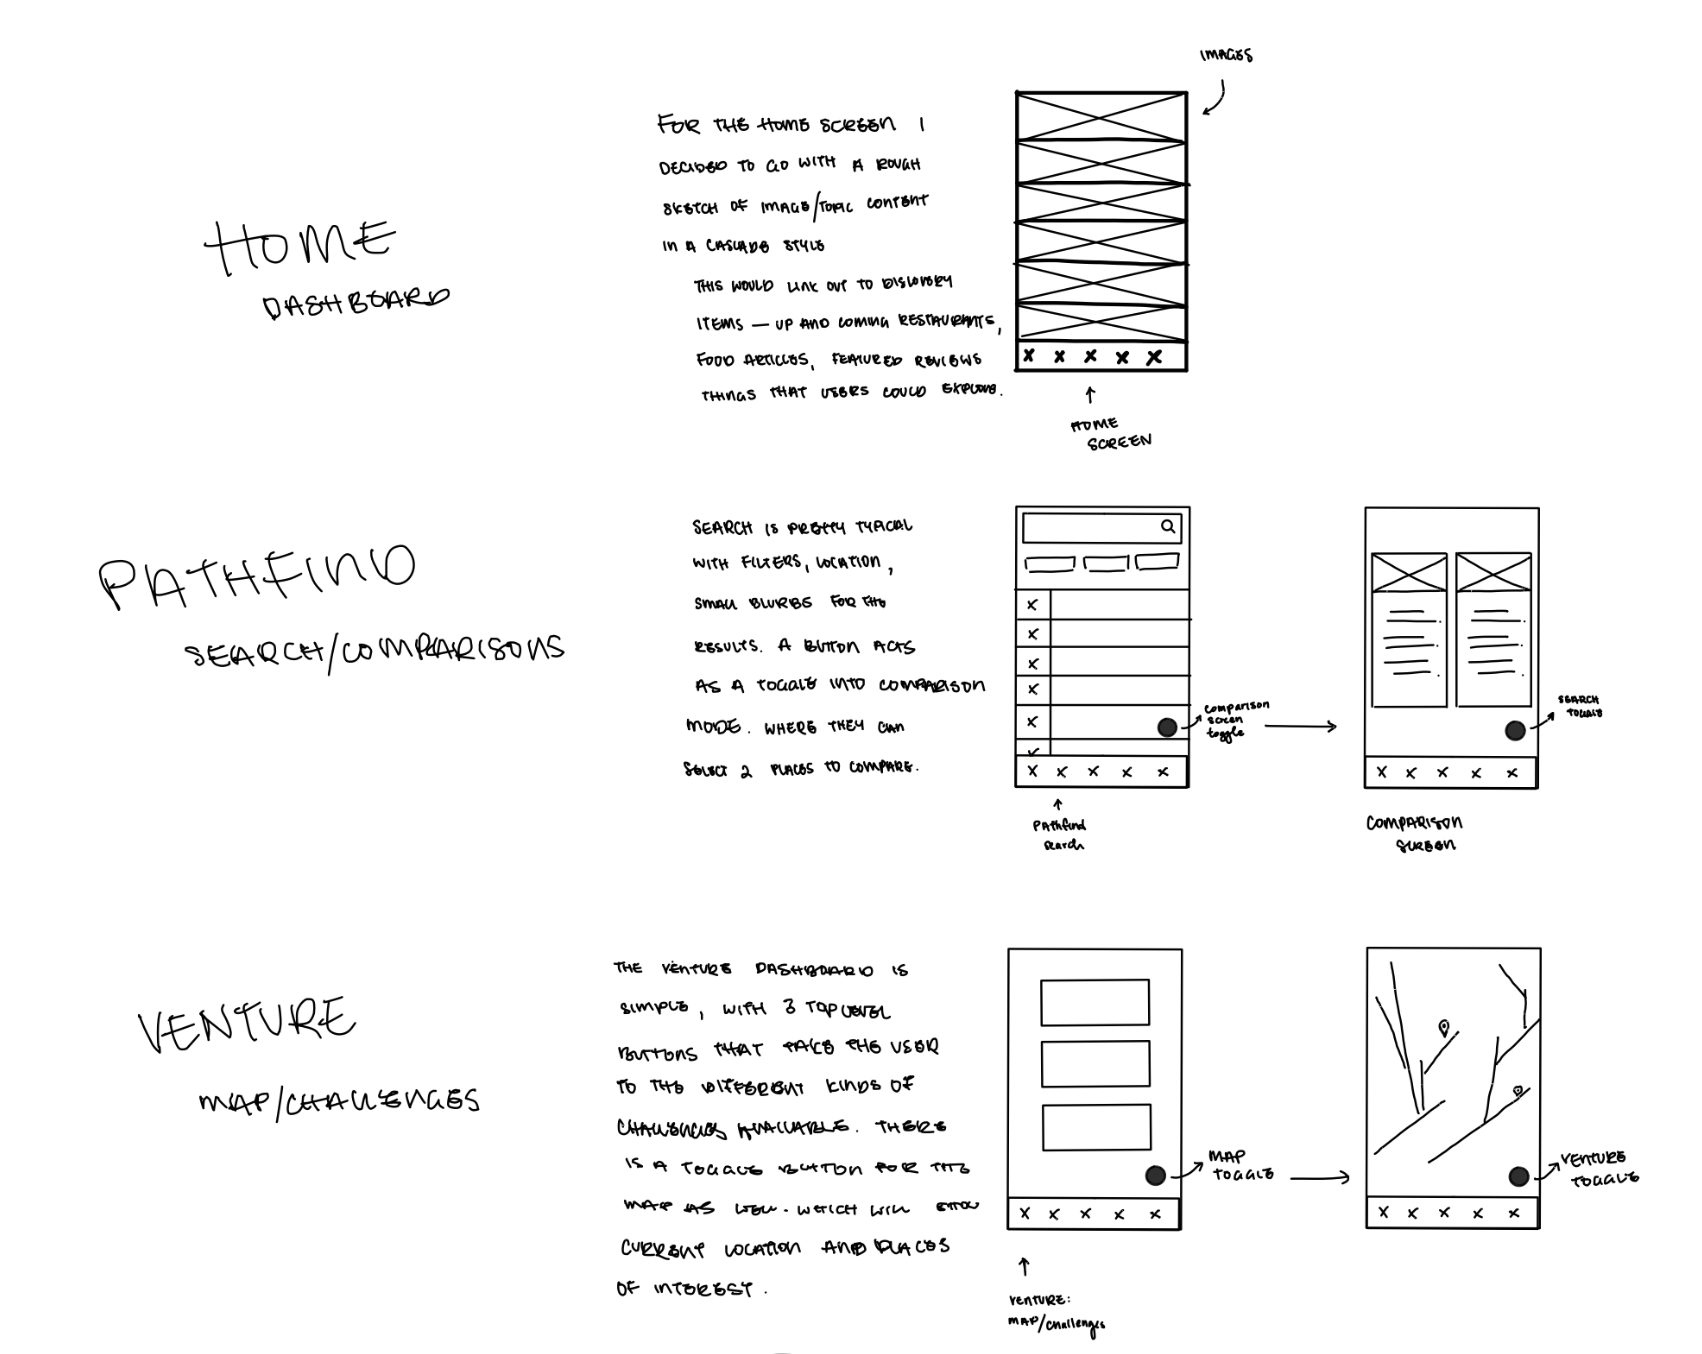 HOME
DASHBOARD
FOR THE HOME SCREEN I
DECIDED TO GO WITH A ROUGH
SKETCH OF IMAGE/TOPIC CONTENT
IN A CASCADE STYLE
THIS WOULD LINK OUT TO DISCOVERY
ITEMS — UP AND COMING RESTAURANTS,
FOOD ARTICLES, FEATURED REVIEWS
THINGS THAT USERS COULD EXPLORE.
IMAGES
HOME
SCREEN
PATHFIND
SEARCH/COMPARISONS
SEARCH IS PRETTY TYPICAL
WITH FILTERS, LOCATION,
SMALL BLURBS FOR THE
RESULTS. A BUTTON ACTS
AS A TOGGLE INTO COMPARISON
MODE. WHERE THEY CAN
SELECT 2 PLACES TO COMPARE.
comparison
screen
toggle
PAthfind
search
SEARCH
TOGGLE
COMPARISON
SCREEN
VENTURE
MAP/CHALLENGES
THE VENTURE DASHBOARD IS
SIMPLE, WITH 3 TOP LEVEL
BUTTONS THAT TAKE THE USER
TO THE DIFFERENT KINDS OF
CHALLENGES AVAILABLE. THERE
IS A TOGGLE BUTTON FOR THE
MAP AS WELL. WHICH WILL SHOW
CURRENT LOCATION AND PLACES
OF INTEREST.
MAP
TOGGLE
VENTURE:
MAP/challenges
VENTURE
TOGGLE